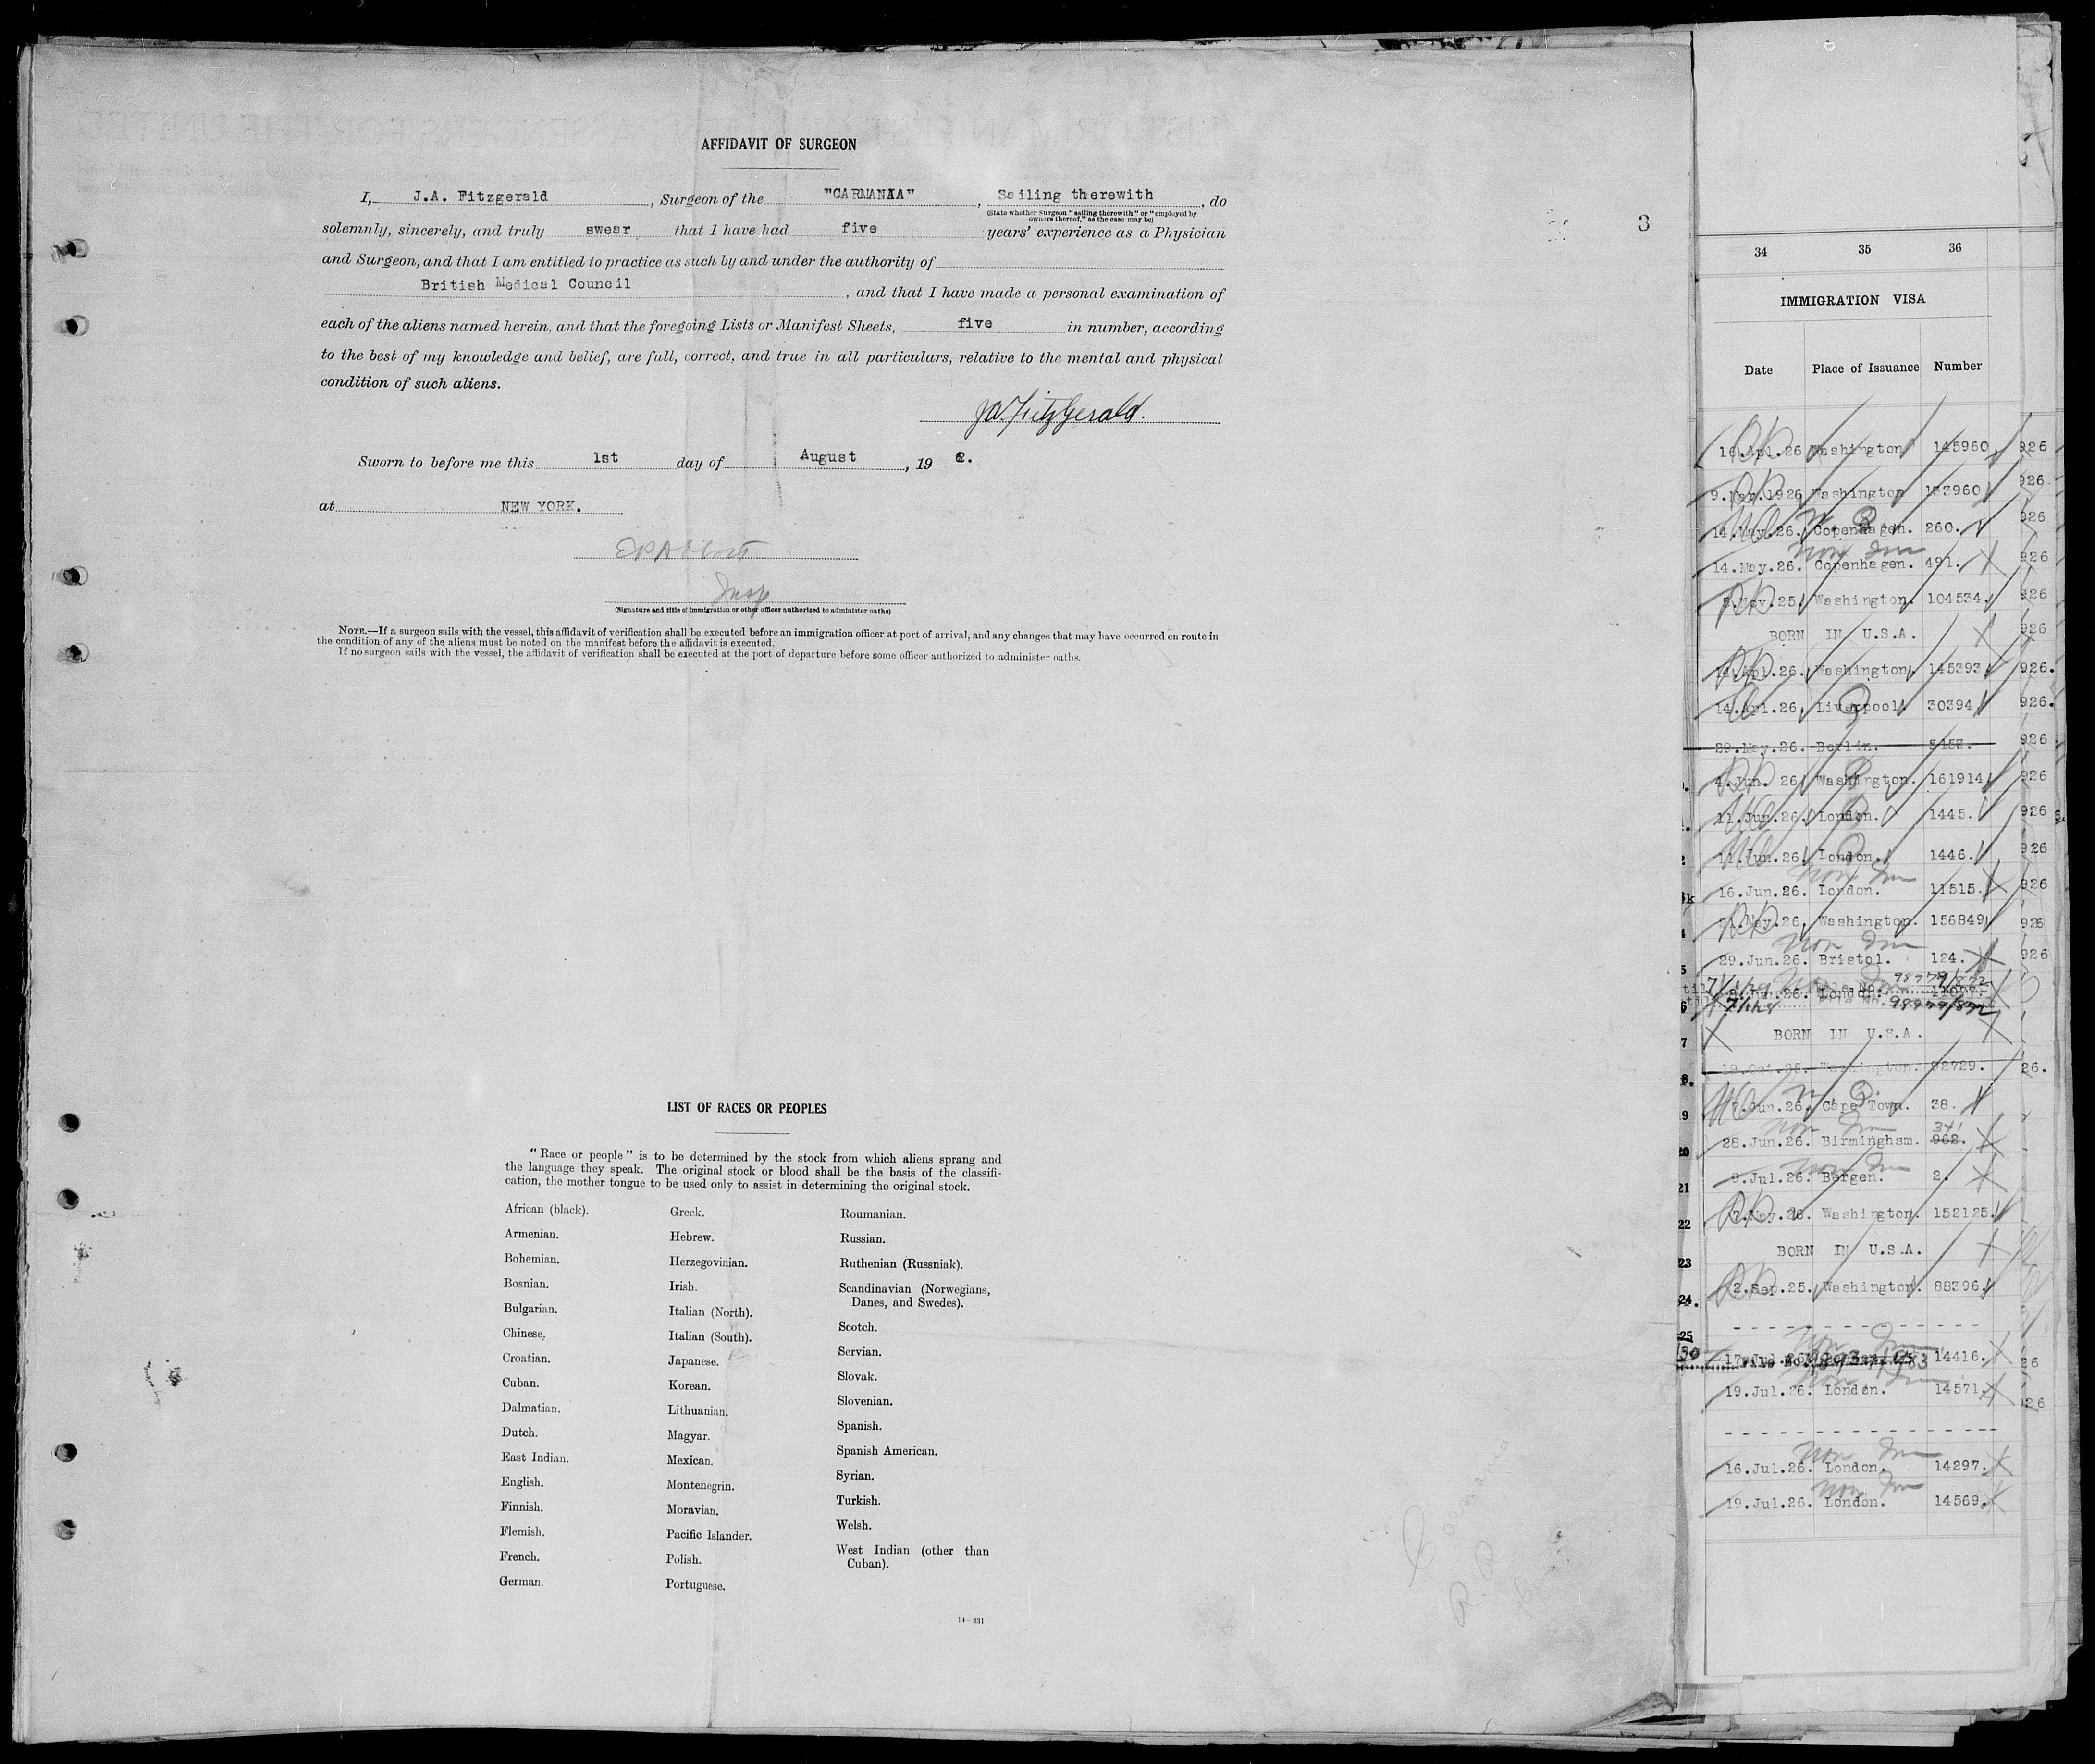 AFFIDAVIT OF SURGEON
I, J.A. Fitzgerald, Surgeon of the "CARMANIA", Sailing therewith, do
(State whether Surgeon "sailing therewith" or "employed by
owners thereof," as the case may be)
solemnly, sincerely, and truly swear that I have had five years' experience as a Physician
and Surgeon, and that I am entitled to practice as such by and under the authority of
British Medical Council, and that I have made a personal examination of
each of the aliens named herein, and that the foregoing Lists or Manifest Sheets, five in number, according
to the best of my knowledge and belief, are full, correct, and true in all particulars, relative to the mental and physical
condition of such aliens.
JA. FitzGerald.
Sworn to before me this 1st day of August, 19
at NEW YORK.
Insp
(Signature and title of immigration or other officer authorized to administer oaths)
NOTE.—If a surgeon sails with the vessel, this affidavit of verification shall be executed before an immigration officer at port of arrival, and any changes that may have occurred en route in
the condition of any of the aliens must be noted on the manifest before the affidavit is executed.
If no surgeon sails with the vessel, the affidavit of verification shall be executed at the port of departure before some officer authorized to administer oaths.
3
LIST OF RACES OR PEOPLES
"Race or people" is to be determined by the stock from which aliens sprang and
the language they speak. The original stock or blood shall be the basis of the classifi-
cation, the mother tongue to be used only to assist in determining the original stock.
African (black).
Armenian.
Bohemian.
Bosnian.
Bulgarian.
Chinese.
Croatian.
Cuban.
Dalmatian.
Dutch.
East Indian.
English.
Finnish.
Flemish.
French.
German.
Greek.
Hebrew.
Herzegovinian.
Irish.
Italian (North).
Italian (South).
Japanese.
Korean.
Lithuanian.
Magyar.
Mexican.
Montenegrin.
Moravian.
Pacific Islander.
Polish.
Portuguese.
Roumanian.
Russian.
Ruthenian (Russniak).
Scandinavian (Norwegians,
Danes, and Swedes).
Scotch.
Servian.
Slovak.
Slovenian.
Spanish.
Spanish American.
Syrian.
Turkish.
Welsh.
West Indian (other than
Cuban).
14—431
Carmania
R.P.
34 35 36
IMMIGRATION VISA
Date Place of Issuance Number
16.Apl.26 Washington 145960
9.Mar.1926 Washington 133960
14.May.26. Copenhagen. 260.
Non Im
14.May.26. Copenhagen. 491.
5.Nov.25. Washington. 104534.
BORN IN U.S.A.
14.Apl.26. Washington. 145393
14.Apl.26. Liverpool. 30394
29.May.26. Berlin. 5453.
4.Jun. 26 Washington. 161914
11.Jun.26. London. 1445.
11.Jun.26. London. 1446.
Non Im
16.Jun.26. London. 11515.
21.May.26. Washington. 156849
Non Im
29.Jun.26. Bristol. 124.
98979/872
Jun.26. London.
98979/872
BORN IN U.S.A.
19.Oct.25. Washington. 92729.
7.Jun.26. Cape Town. 38.
Non Im 341
28.Jun.26. Birmingham. 962.
Non Im
9.Jul.26. Bergen. 2.
7.May.26. Washington. 152125.
BORN IN U.S.A.
2.Sep.25. Washington. 88396.
Non Im
17.Jul.26. London. 14416.
File No.
Non Im
19.Jul.26. London. 14571.
Non Im
16.Jul.26. London. 14297.
Non Im
19.Jul.26. London. 14569.